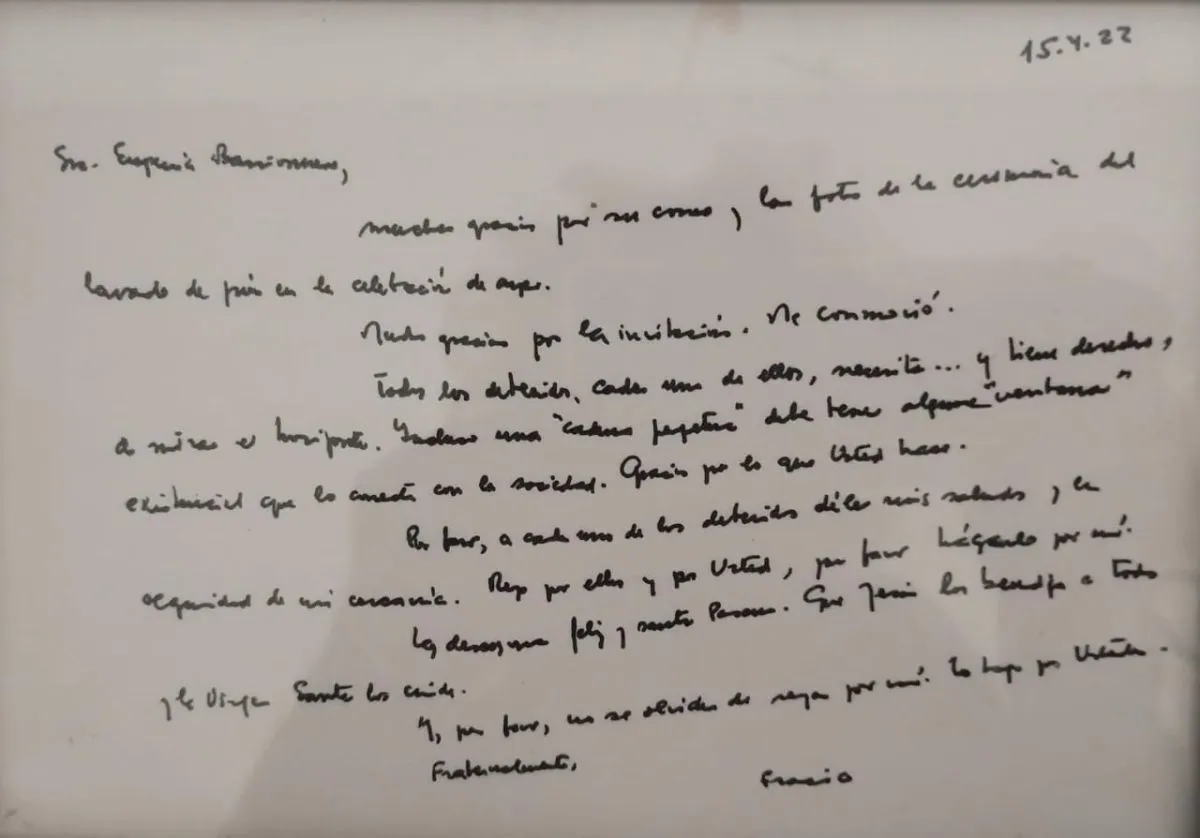 15.4.22
Sra. Eugenia
muchas gracias por su correo y las fotos de la ceremonia del
lavado de pies en la celebración de ayer.
Muchas gracias por la invitación. Me conmovió.
Todos los detenidos, cada uno de ellos, necesita... y tiene derecho,
a mirar el horizonte. Incluso una "cadena perpetua" debe tener alguna "ventana"
existencial que lo conecte con la sociedad. Gracias por lo que Usted hace.
Por favor, a cada uno de los detenidos déles mis saludos y la
seguridad de mi cercanía. Rezo por ellos y por Usted, por favor háganlo por mí.
Les deseo una feliz y santa Pascua. Que Jesús los bendiga a todos
y la Virgen Santa los cuide.
Y, por favor, no se olviden de rezar por mí. Lo hago por Ustedes.
Fraternalmente,